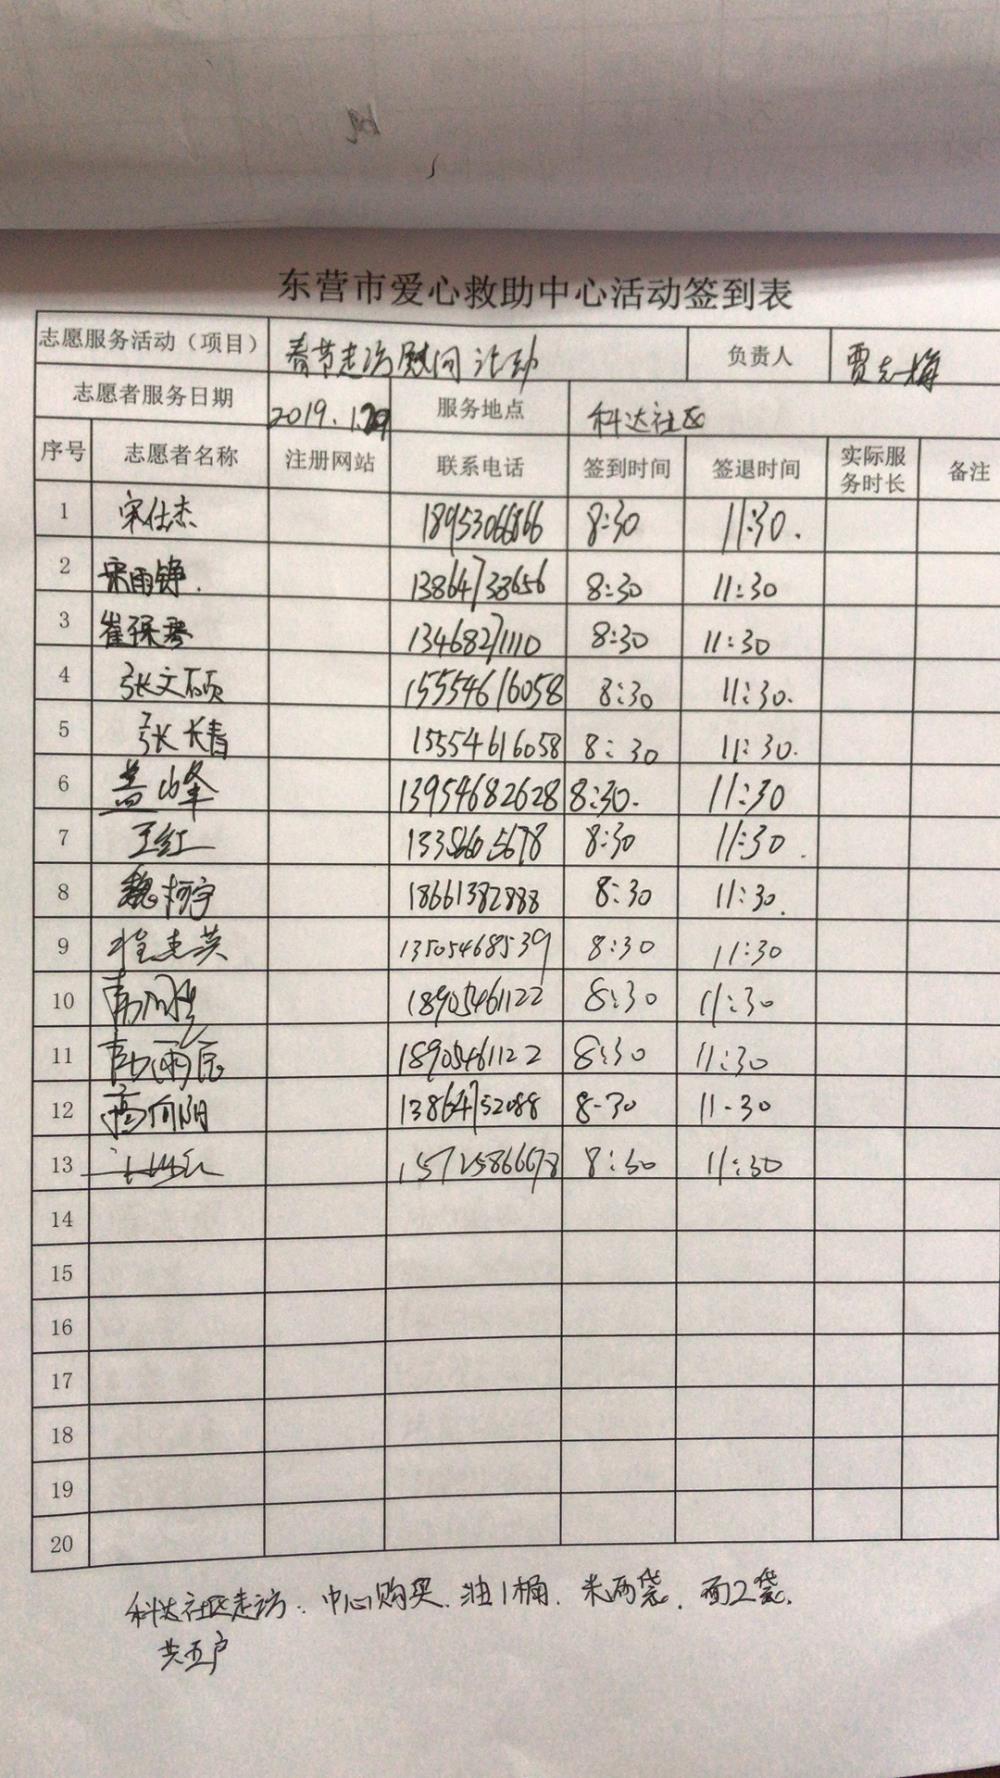 东营市爱心救助中心活动签到表
志愿服务活动（项目） 春节走访慰问活动 负责人 贾志梅
志愿者服务日期 2019.1.29 服务地点 科达社区
序号 志愿者名称 注册网站 联系电话 签到时间 签退时间 实际服务时长 备注
1 宋仕杰 18953066866 8:30 11:30.
2 宋雨铮. 13864733656 8:30 11:30
3 崔 13468271110 8:30 11:30
4 张文硕 15554616058 8:30 11:30.
5 张长春 15554616058 8:30 11:30.
6 盖峰 13954682628 8:30. 11:30
7 王红 8:30 11:30.
8 魏柯宇 18661382888 8:30 11:30.
9 13505468539 8:30 11:30
10 18905461122 8:30 11:30
11 18905461122 8:30 11:30
12 高向阳 13864752088 8-30 11-30
13 15725866678 8:30 11:30
14
15
16
17
18
19
20
科达社区走访. 中心购买. 油1桶. 米两袋. 面2袋.
共五户